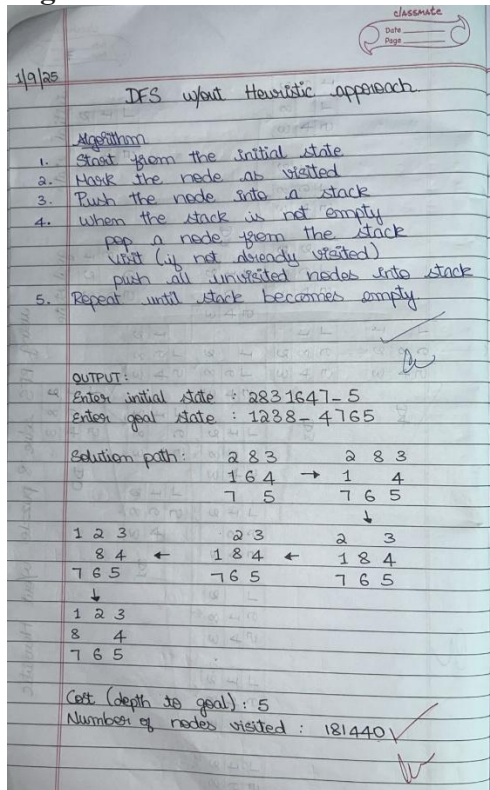 classmate
Date
Page
1/9/25
DFS w/out Heuristic approach
Algorithm
1. Start from the initial state
2. Mark the node as visited
3. Push the node into a stack
4. When the stack is not empty
pop a node from the stack
visit (if not already visited)
push all unvisited nodes into stack
5. Repeat until stack becomes empty
OUTPUT:
Enter initial state : 2831647-5
Enter goal state : 1238-4765
Solution path: 2 8 3 2 8 3
1 6 4 → 1 4
7 5 7 6 5
↓
1 2 3 2 3 2 3
8 4 ← 1 8 4 ← 1 8 4
7 6 5 7 6 5 7 6 5
↓
1 2 3
8 4
7 6 5
Cost (depth to goal): 5
Number of nodes visited : 181440